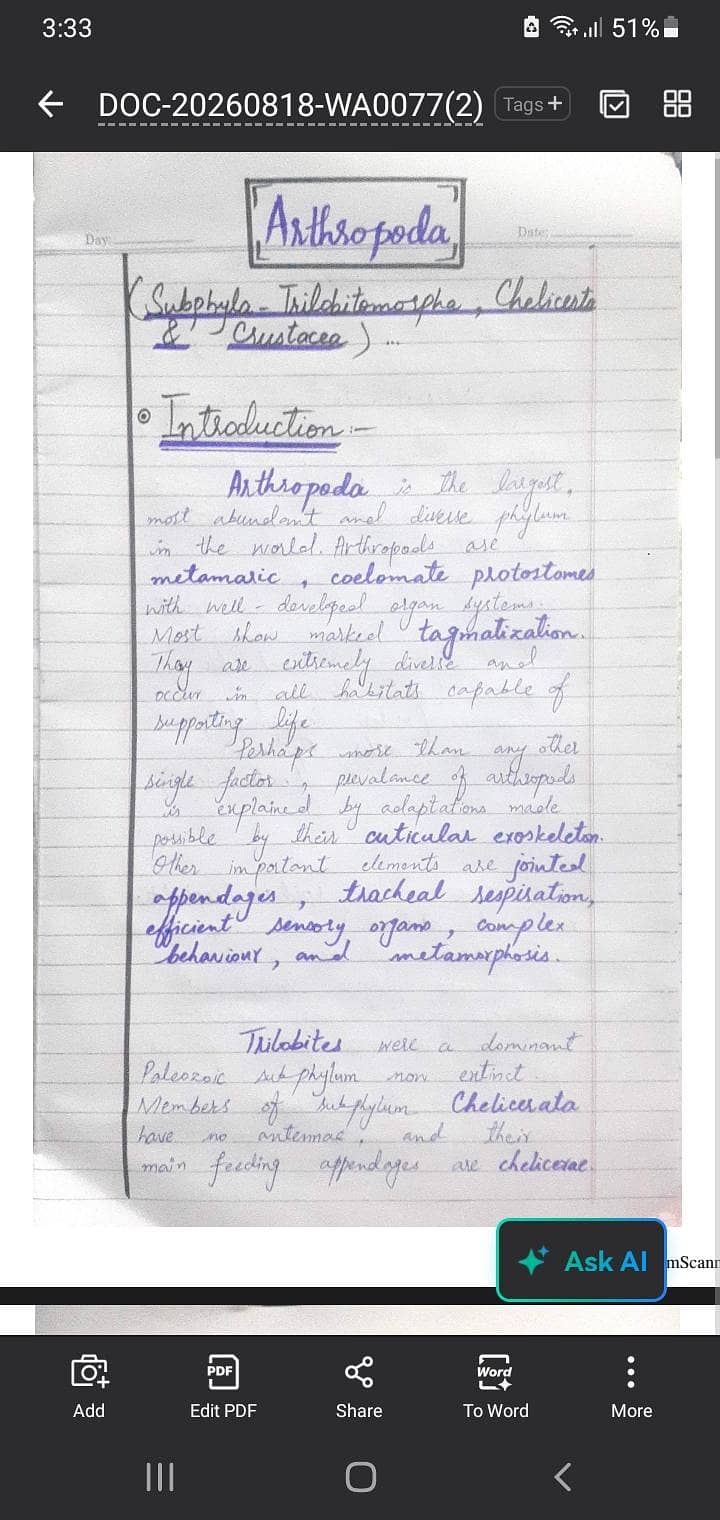 3:33
51%
DOC-20260818-WA0077(2)
Tags+
Day:
Date:
Arthropoda
(Subphyla - Trilobitomorpha, Chelicerata
& Crustacea) ...
Introduction :-
Arthropoda is the largest,
most abundant and diverse phylum
in the world. Arthropods are
metamaric, coelomate protostomes
with well-developed organ systems.
Most show marked tagmatization.
They are extremely diverse and
occur in all habitats capable of
supporting life.
Perhaps more than any other
single factor, prevalance of arthropods
is explained by adaptations made
possible by their cuticular exoskeleton.
Other important elements are jointed
appendages, tracheal respiration,
efficient sensory organs, complex
behaviour, and metamorphosis.
Trilobites were a dominant
Paleozoic subphylum now extinct.
Members of subphylum Chelicerata
have no antennae, and their
main feeding appendages are chelicerae.
Ask AI
mScann
Add
PDF
Edit PDF
Share
Word
To Word
More